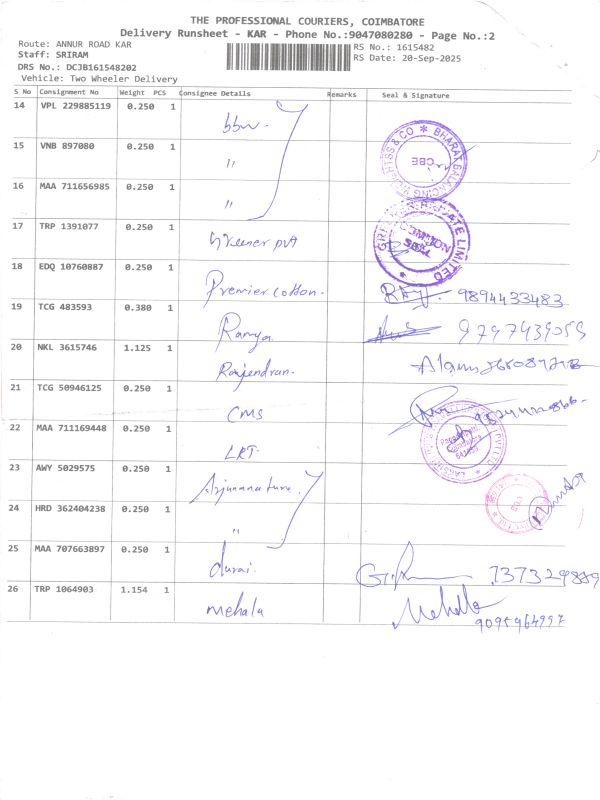 THE PROFESSIONAL COURIERS, COIMBATORE
Delivery Runsheet - KAR - Phone No.:9047080280 - Page No.:2
Route: ANNUR ROAD KAR
RS No.: 1615482
Staff: SRIRAM
RS Date: 20-Sep-2025
DRS No.: DCJB161548202
Vehicle: Two Wheeler Delivery
S No Consignment No Weight PCS Consignee Details Remarks Seal & Signature
14 VPL 229885119 0.250 1
15 VNB 897080 0.250 1 "
BHARAT BALANCING & CO CBE
16 MAA 711656985 0.250 1 "
17 TRP 1391077 0.250 1 Greener pvt
PRIVATE LIMITED COMMON SEAL
18 EDQ 10760887 0.250 1 Premier Cotton. 9894433483
19 TCG 483593 0.380 1 Ramya
20 NKL 3615746 1.125 1 Rajendran.
21 TCG 50946125 0.250 1 CMS
22 MAA 711169448 0.250 1 LRT.
23 AWY 5029575 0.250 1
24 HRD 362404238 0.250 1 "
25 MAA 707663897 0.250 1 durai.
26 TRP 1064903 1.154 1 Mehala Mehalla
9095964997